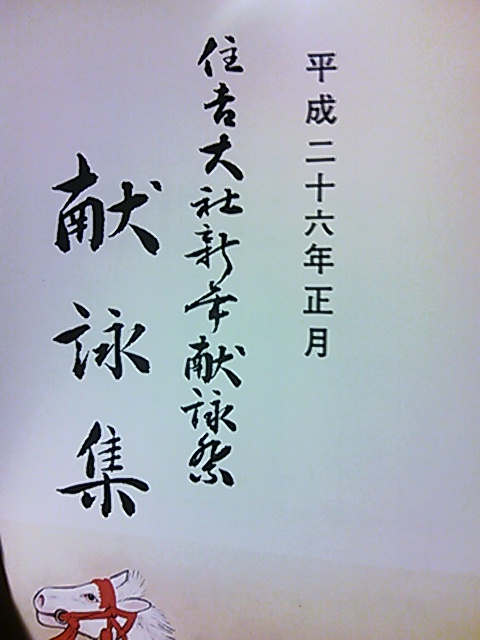 平成二十六年正月
住吉大社新年献詠祭
献詠集